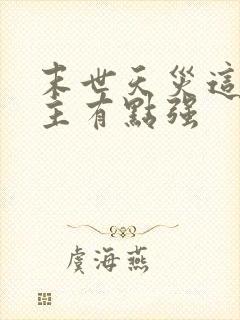 末世天災這
主有點强
虞海燕